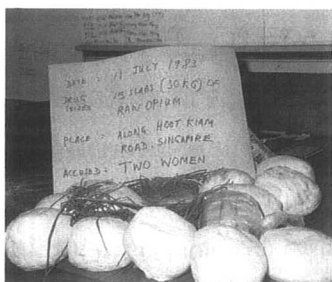 DATE : 11 JULY 1983
DRUG 15 SLABS (30KG) OF
RAW OPIUM
PLACE : ALONG HOOT KIAM
ROAD, SINGAPORE
ACCUSED : TWO WOMEN